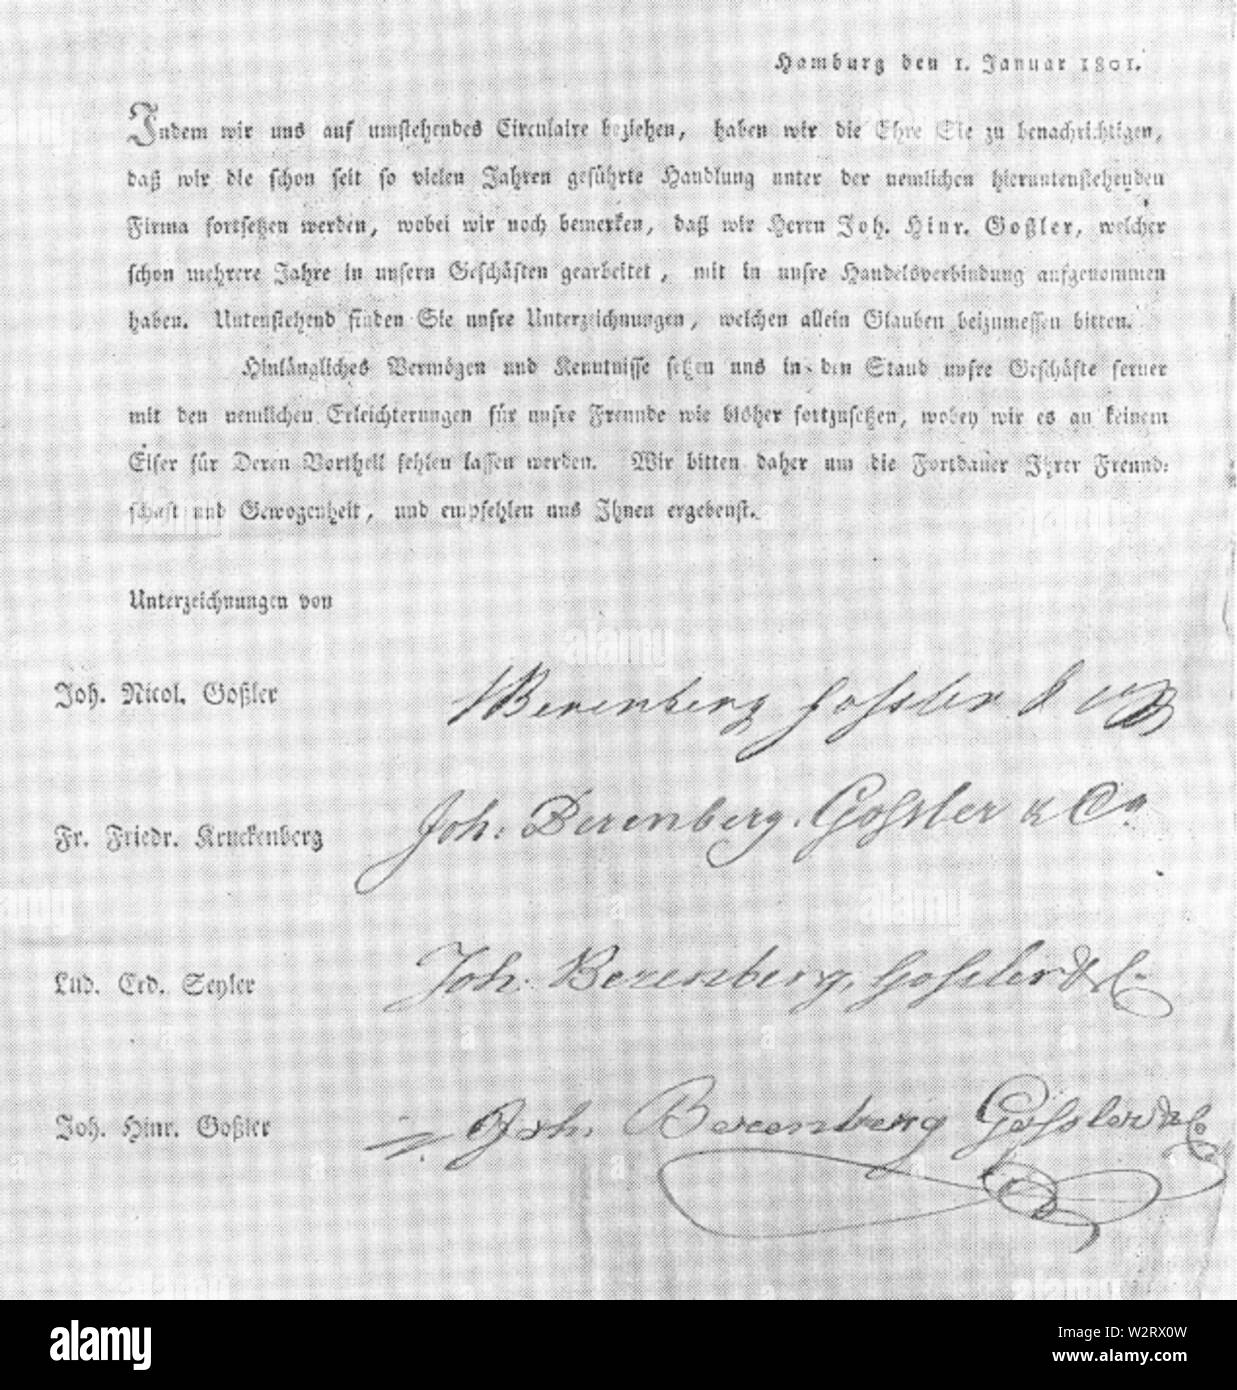 Hamburg den 1. Januar 1801.
Indem wir uns auf umstehendes Circulaire beziehen, haben wir die Ehre Sie zu benachrichtigen,
daß wir die schon seit so vielen Jahren geführte Handlung unter der nemlichen hieruntenstehenden
Firma fortsetzen werden, wobei wir noch bemerken, daß wir Herrn Joh. Hinr. Goßler, welcher
schon mehrere Jahre in unsern Geschäften gearbeitet, mit in unsre Handelsverbindung aufgenommen
haben. Untenstehend finden Sie unsre Unterzeichnungen, welchen allein Glauben beizumessen bitten.
Hinlängliches Vermögen und Kenntnisse setzen uns in den Stand unsre Geschäfte ferner
mit den nemlichen Erleichterungen für unsre Freunde wie bisher fortzusetzen, wobey wir es an keinem
Eifer für Deren Vortheil fehlen lassen werden. Wir bitten daher um die Fortdauer Ihrer Freund-
schaft und Gewogenheit, und empfehlen uns Ihnen ergebenst.
Unterzeichnungen von
Joh. Nicol. Goßler Berenberg Gossler &
Fr. Friedr. Kruckenberg Joh. Berenberg, Gossler & Co
Lud. Erd. Seyler Joh. Berenberg, Gossler & C.
Joh. Hinr. Goßler Joh. Berenberg Gossler & Co
alamy
Image ID: W2RX0W
www.alamy.com